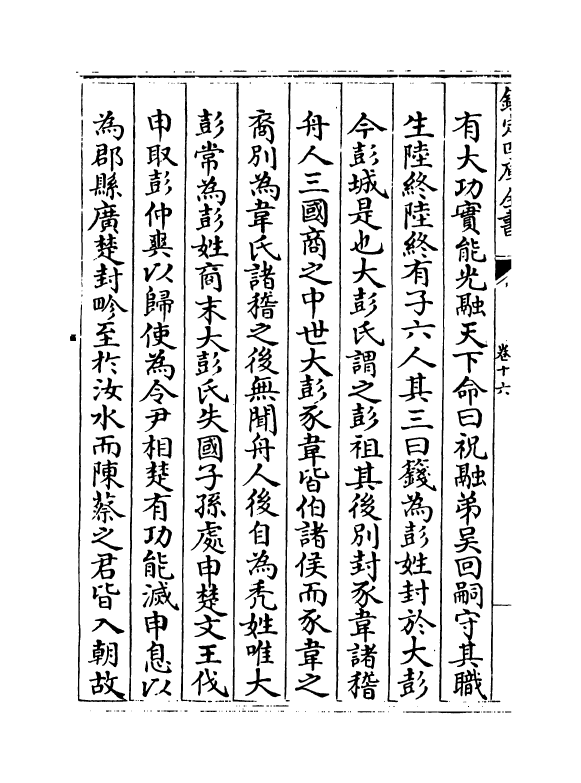 欽定四庫全書
卷十六
有大功實能光融天下命曰祝融弟吴回嗣守其職
生陸終陸終有子六人其三曰籛為彭姓封於大彭
今彭城是也大彭氏謂之彭祖其後別封豕韋諸稽
舟人三國商之中世大彭豕韋皆伯諸侯而豕韋之
裔別為韋氏諸稽之後無聞舟人後自為秃姓唯大
彭常為彭姓商末大彭氏失國子孫處申楚文王伐
申取彭仲爽以歸使為令尹相楚有功能滅申息以
為郡縣廣楚封畛至於汝水而陳蔡之君皆入朝故